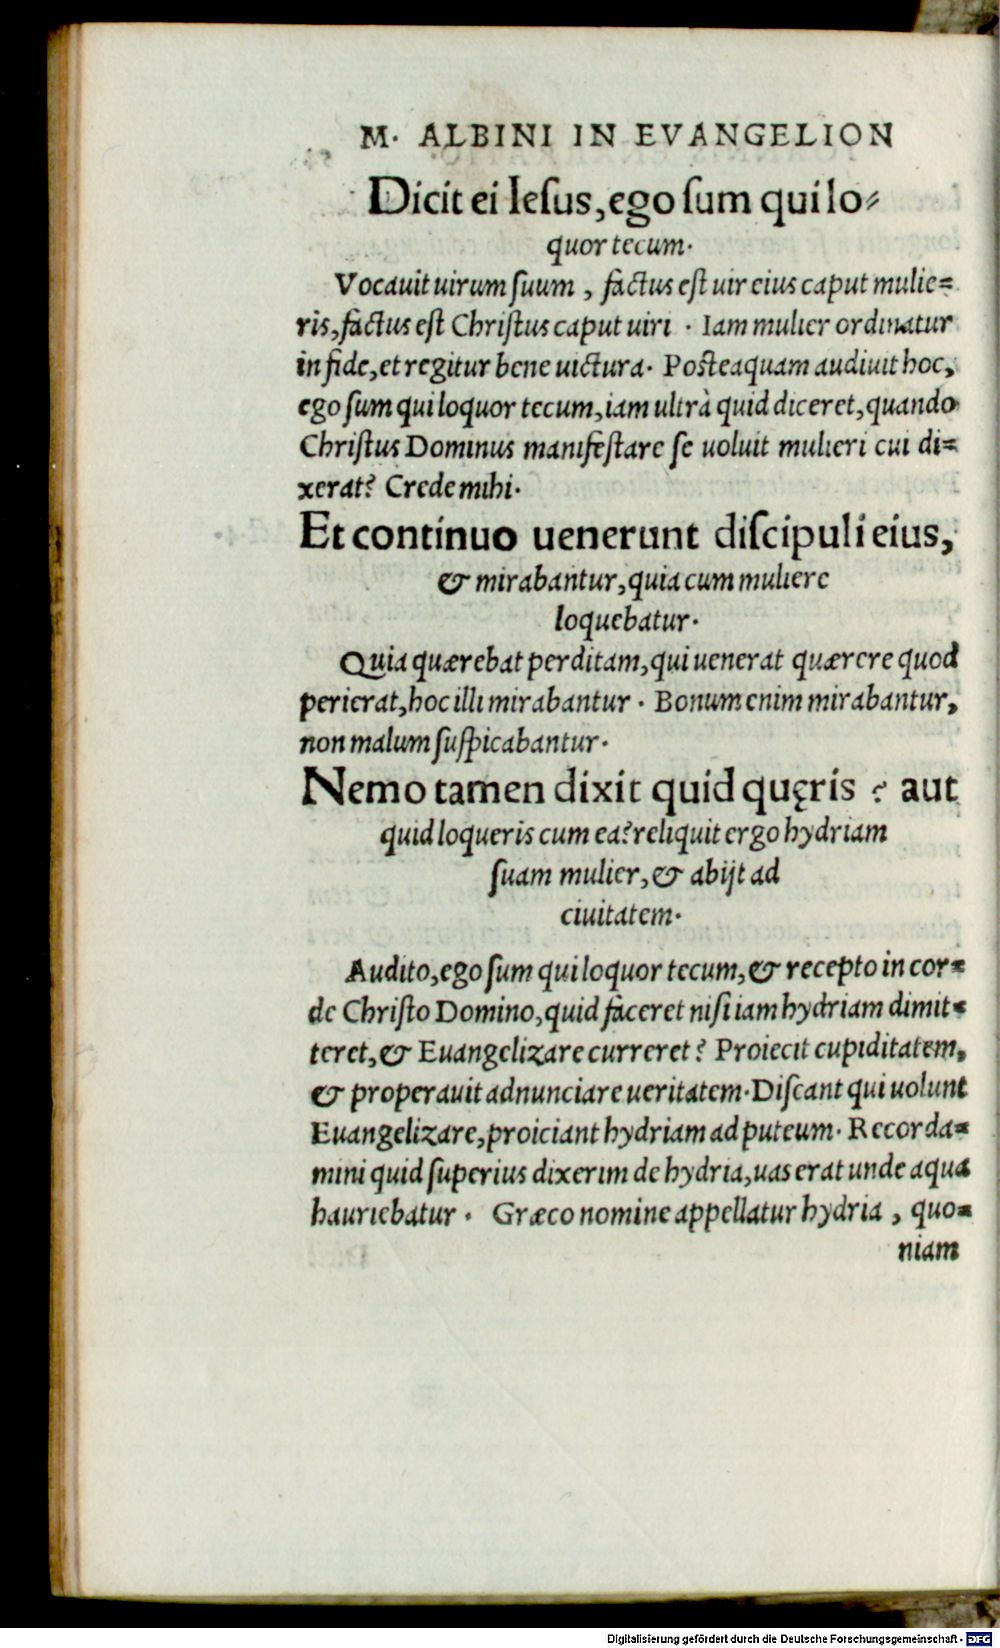 M. ALBINI IN EVANGELION
Dicit ei Iesus, ego sum qui lo-
quor tecum.
Vocauit uirum suum, factus est uir eius caput mulie=
ris, factus est Christus caput uiri . Iam mulier ordinatur
in fide, et regitur bene uictura. Posteaquam audiuit hoc,
ego sum qui loquor tecum, iam ultrà quid diceret, quando
Christus Dominus manifestare se uoluit mulieri cui di=
xerat? Crede mihi.
Et continuo uenerunt discipuli eius,
& mirabantur, quia cum muliere
loquebatur.
Quia quærebat perditam, qui uenerat quærere quod
perierat, hoc illi mirabantur . Bonum enim mirabantur,
non malum suspicabantur.
Nemo tamen dixit quid quęris ? aut
quid loqueris cum ea? reliquit ergo hydriam
suam mulier, & abijt ad
ciuitatem.
Audito, ego sum qui loquor tecum, & recepto in cor=
de Christo Domino, quid faceret nisi iam hydriam dimit=
teret, & Euangelizare curreret? Proiecit cupiditatem,
& properauit adnunciare ueritatem. Discant qui uolunt
Euangelizare, proiciant hydriam ad puteum. Recorda=
mini quid superius dixerim de hydria, uas erat unde aqua
hauriebatur . Græco nomine appellatur hydria , quo=
niam
Digitalisierung gefördert durch die Deutsche Forschungsgemeinschaft - DFG